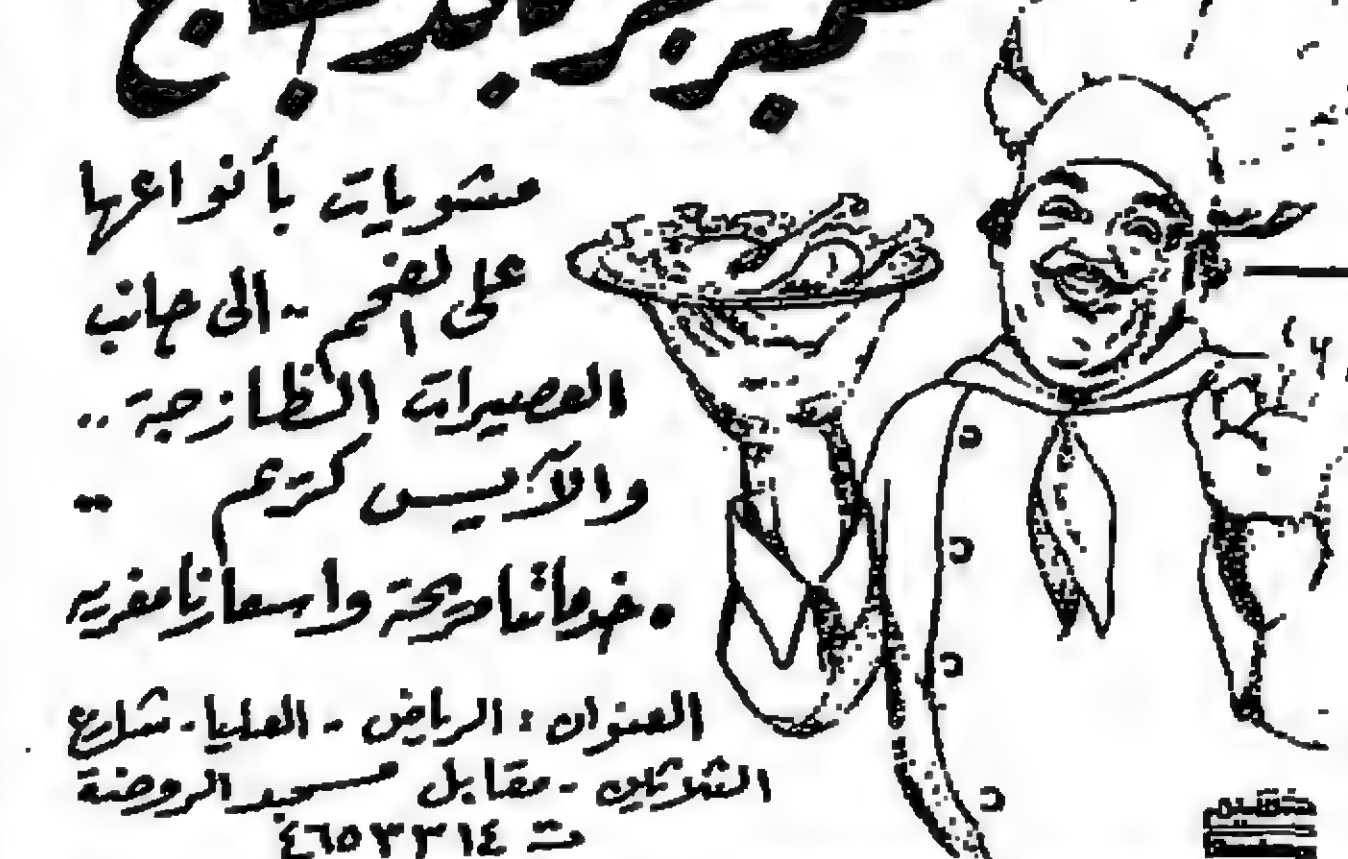 مشويات بأنواعها
على الفحم .. الى جانب
العصيرات الطازجة ..
والآيس كريم ..
• خدماتنا مريحة واسعارنا مغرية
العنوان : الرياض - العليا - شارع
الثلاثين - مقابل مسجد الروضة
ت ٤٦٥٣٣١٤